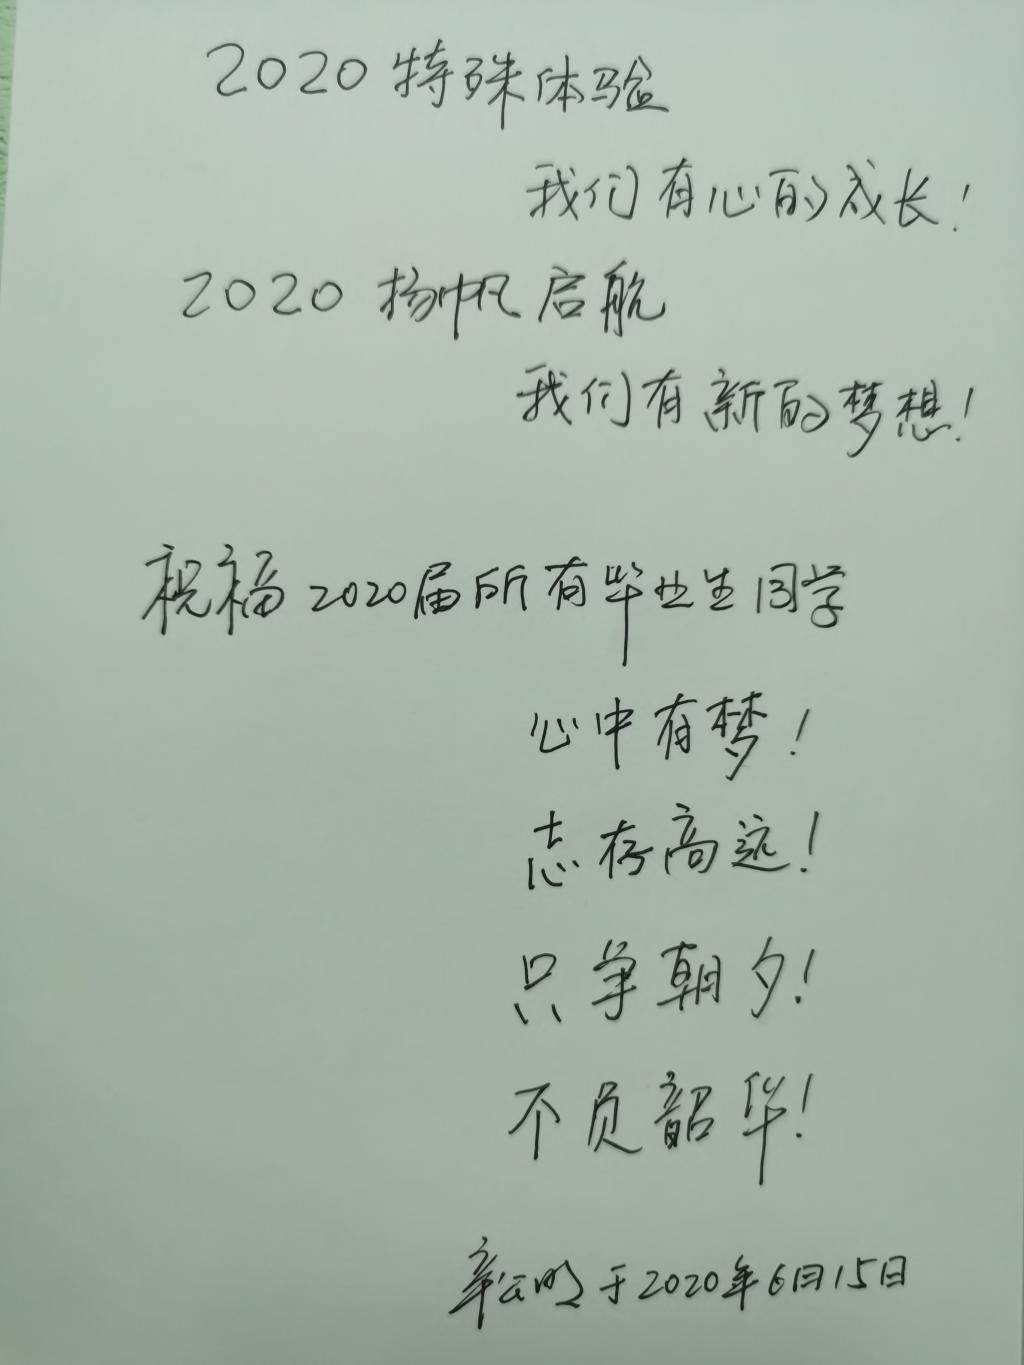 2020 特殊体验
我们有心的成长！
2020 扬帆启航
我们有新的梦想！
祝福2020届所有毕业生同学
心中有梦！
志存高远！
只争朝夕！
不负韶华！
于2020年6月15日